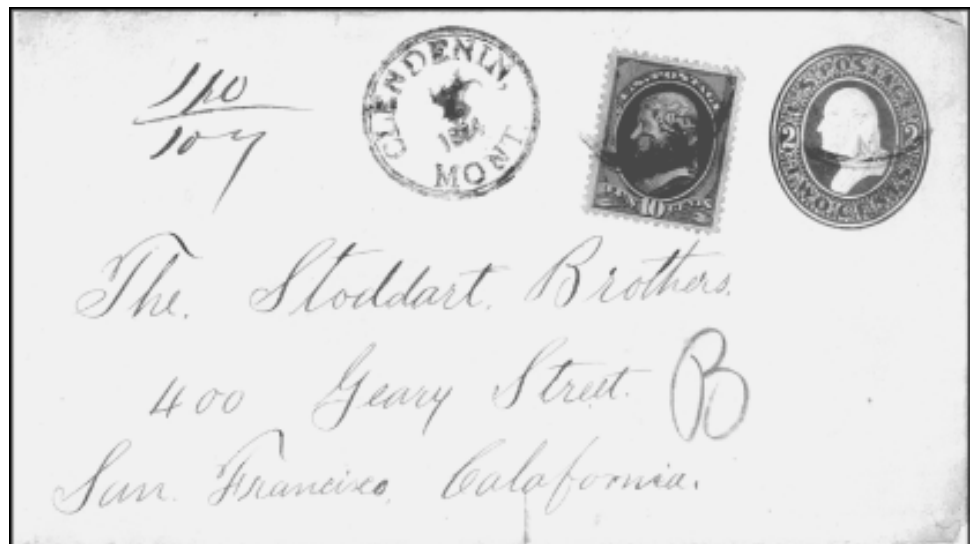 110
107
CLENDENIN,
MONT.
U.S. POSTAGE
TEN 10 CENTS
U.S. POSTAGE
2 2
TWO CENTS
The. Stoddart. Brothers.
400 Geary Street. B
San. Francisco, Calafornia.